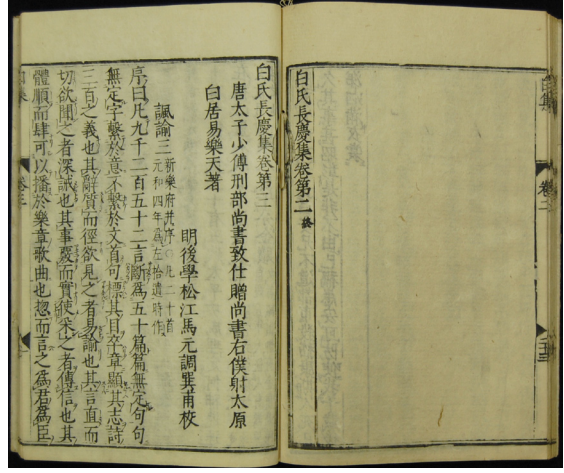 白氏長慶集卷第二 終
白氏長慶集卷第三
唐太子少傅刑部尚書致仕贈尚書右僕射太原
白居易樂天著
明後學松江馬元調巽甫校
諷諭三 新樂府并序○凡二十首
元和四年爲左拾遺時作
序曰凡九千二百五十二言斷爲五十篇篇無定句句
無定字繫於意不繫於文首句標其目卒章顯其志詩
三百之義也其辭質而徑欲見之者易諭也其言直而
切欲聞之者深誡也其事覈而實使采之者傳信也其
體順而肆可以播於樂章歌曲也惣而言之爲君爲臣